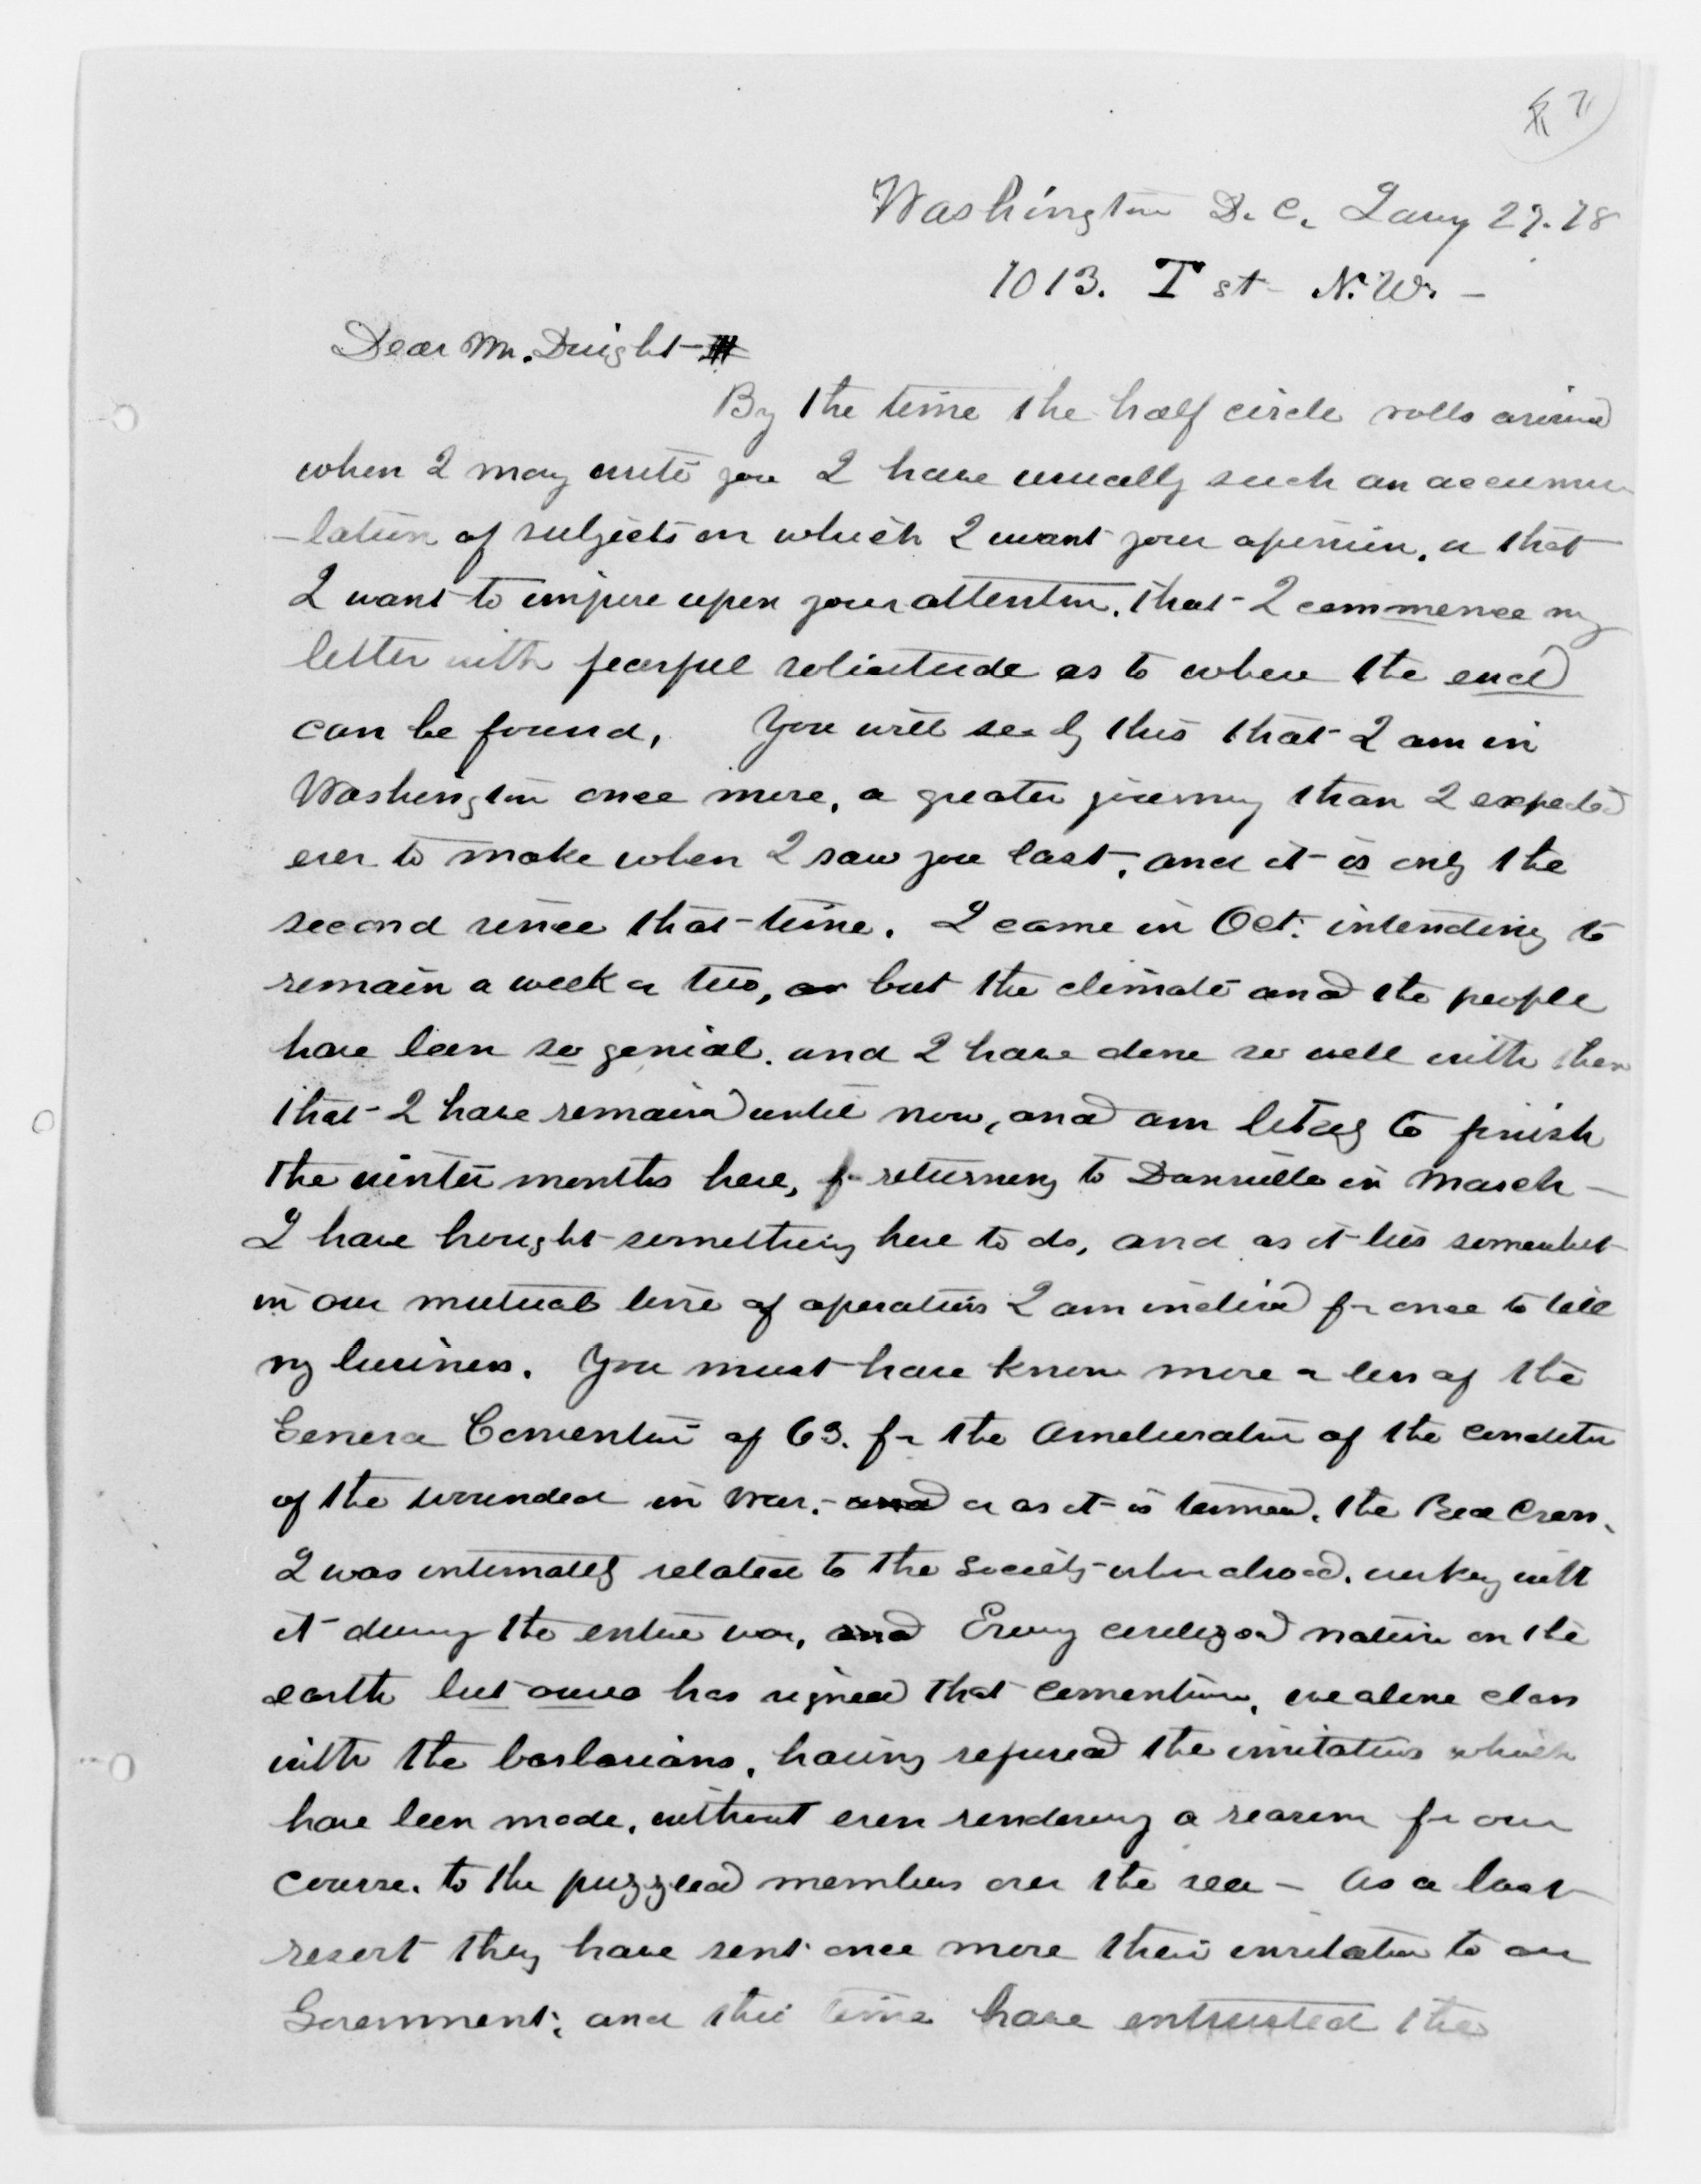 Washington D.C. Jany 27. 78
1013. T st- N.W. -
Dear Mr. Dwight -
By the time the half circle rolls around
when I may write you I have usually such an accumu
-lation of subjects on which I want your opinion, or that
I want to impose upon your attention, that I commence my
letter with fearful solicitude as to where the end
can be found, You will see by this that I am in
Washington once more, a greater journey than I expected
ever to make when I saw you last, and it is only the
second since that time. I came in Oct. intending to
remain a week or two, or but the climate and the people
have been so genial, and I have done so well with them
that I have remained until now, and am likely to finish
the winter months here, returning to Dansville in March -
I have brought something here to do, and as it lies somewhat
in our mutual line of operations I am inclined for once to tell
my business. You must have known more or less of the
Geneva Convention of 63. for the Amelioration of the condition
of the wounded in war, - and or as it is termed, the Red Cross.
I was intimately related to the Society when abroad, working with
it during the entire war, and Every civilized nation on the
earth but ours has signed that convention, we alone class
with the barbarians, having refused the invitations which
have been made, without even rendering a reason for our
course, to the puzzled members over the sea - As a last
resort they have sent once more their invitation to our
Government, and this time have entrusted the